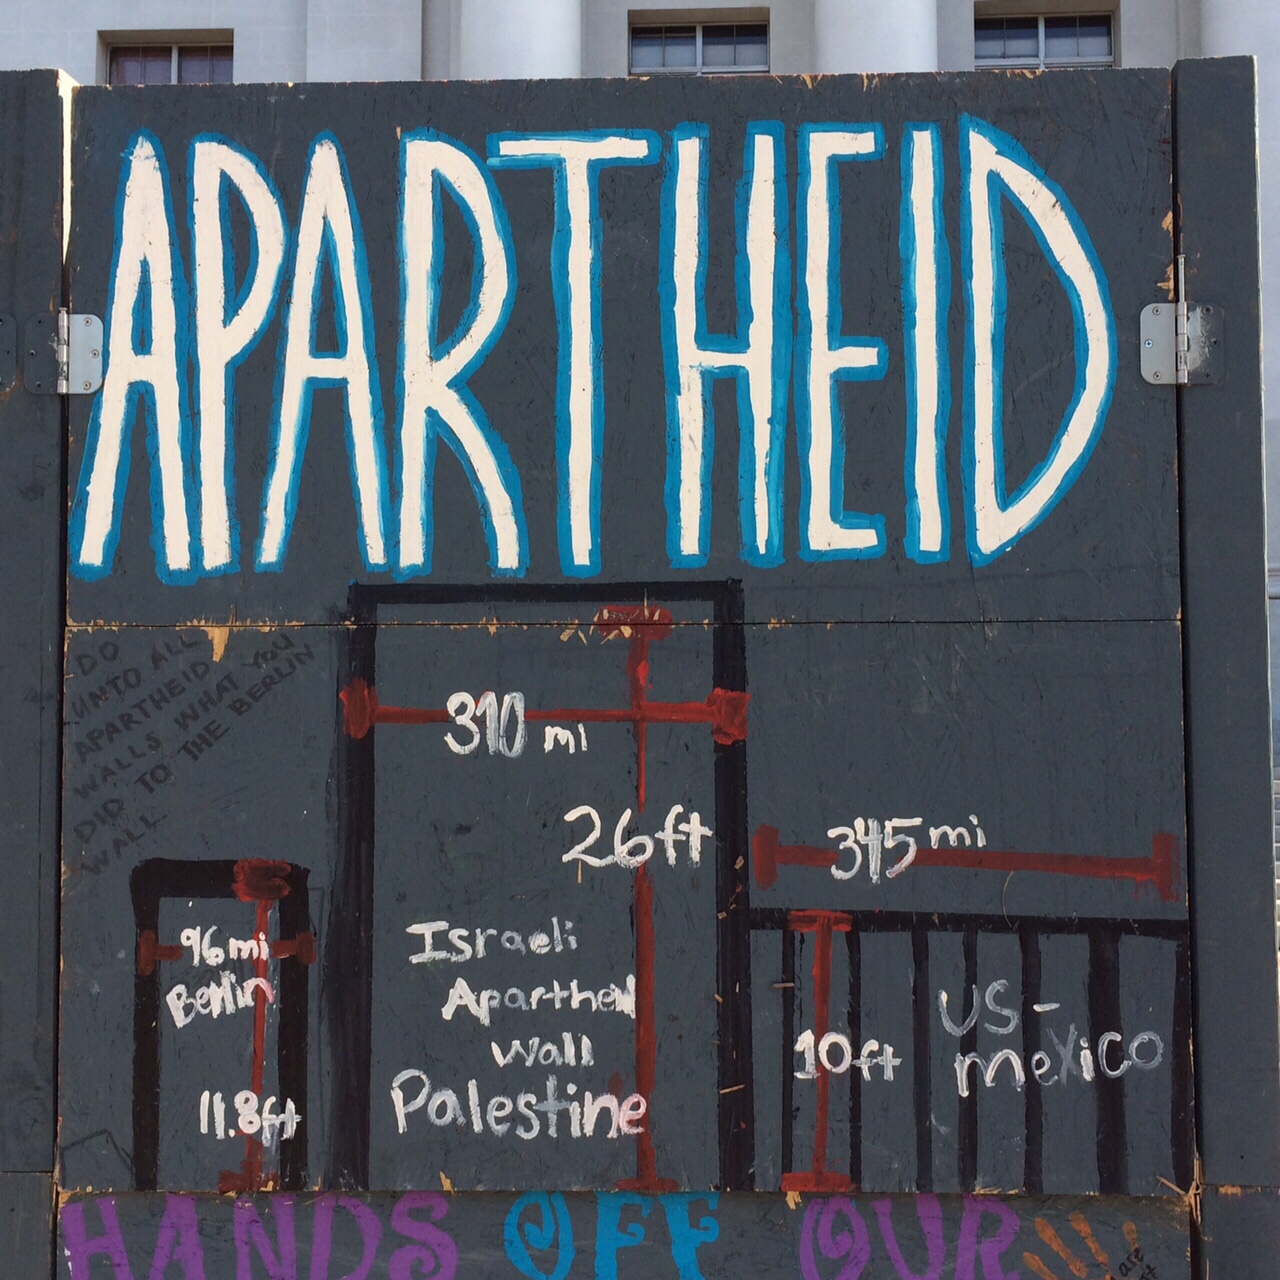 APARTHEID
DO
UNTO ALL
APARTHEID
WALLS WHAT YOU
DID TO THE BERLIN
WALL
310 mi
26ft
345 mi
96mi
Berlin
11.8ft
Israeli
Apartheid
Wall
Palestine
10ft
US-
mexico
HANDS OFF OUR
are